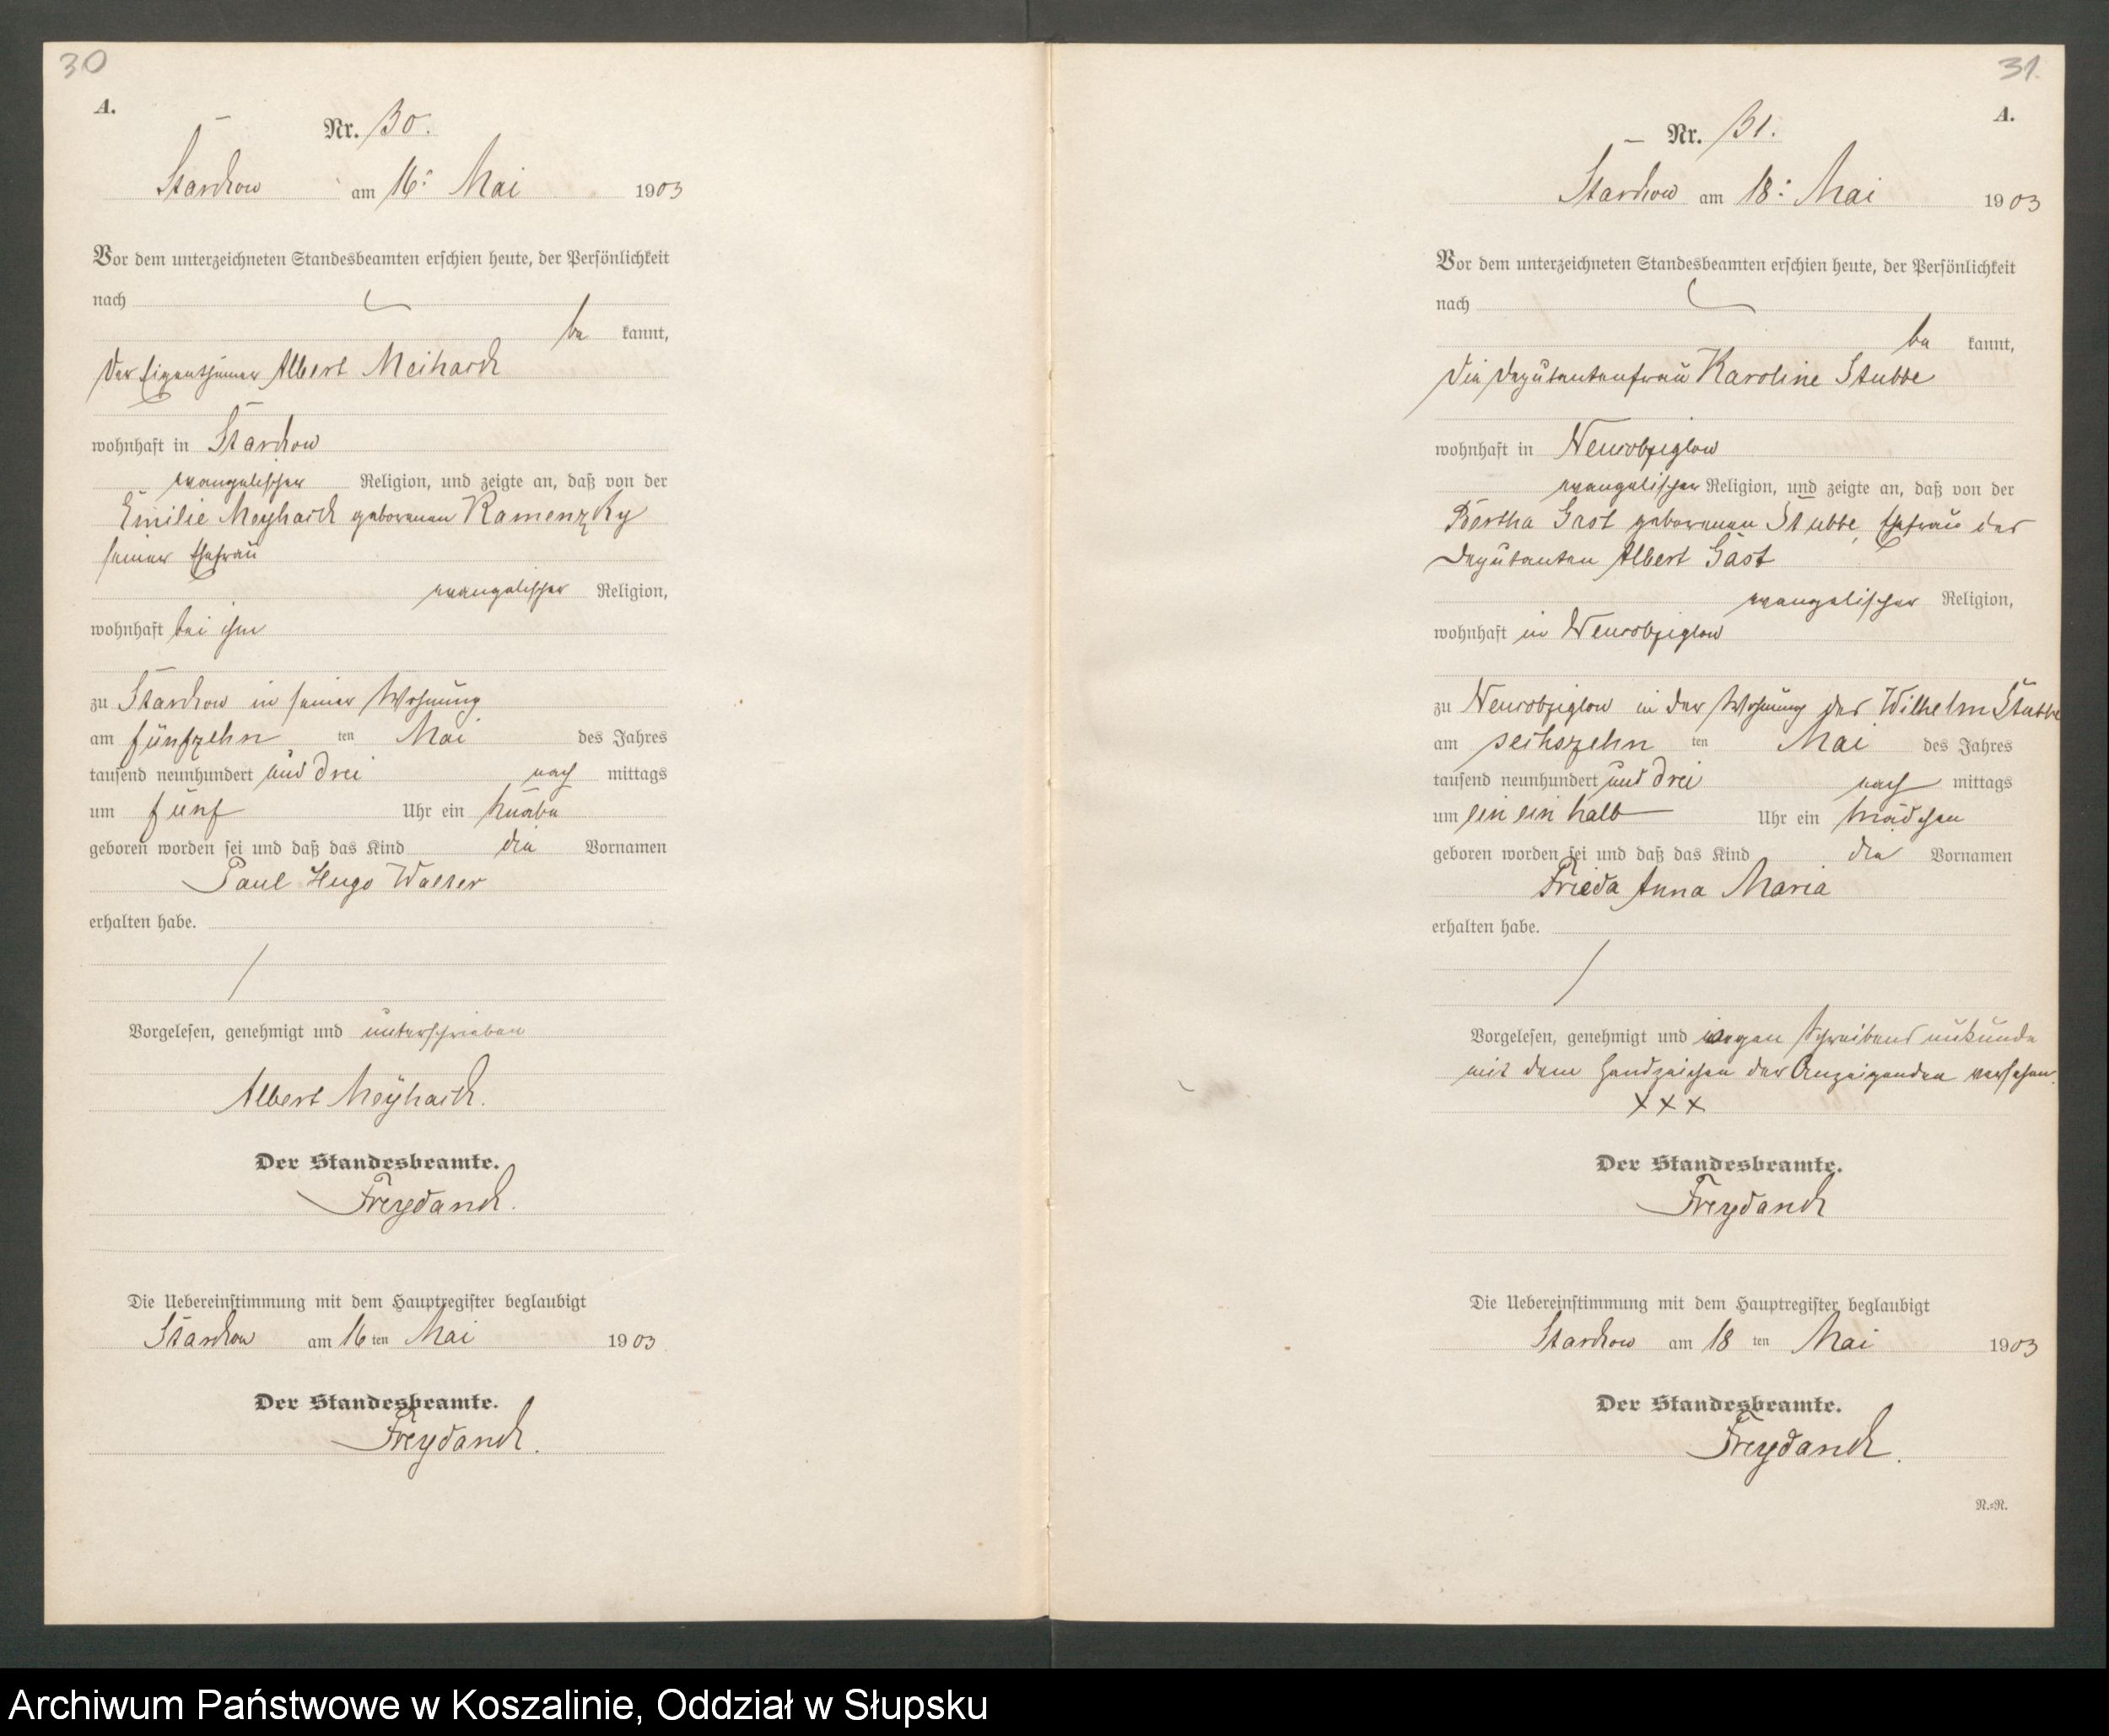 30
A.
Nr. 30.
Starckow am 16. Mai 1903
Vor dem unterzeichneten Standesbeamten erschien heute, der Persönlichkeit
nach
be kannt,
der Eigenthümer Albert Meihack
wohnhaft in Starckow
evangelischer Religion, und zeigte an, daß von der
Emilie Meyhack geborenen Ramenzky
seiner Ehefrau
evangelischer Religion,
wohnhaft bei ihm
zu Starckow in seiner Wohnung
am fünfzehn ten Mai des Jahres
tausend neunhundert und drei nach mittags
um fünf Uhr ein Knabe
geboren worden sei und daß das Kind die Vornamen
Paul Hugo Walter
erhalten habe.
Vorgelesen, genehmigt und unterschrieben
Albert Meÿhack.
Der Standesbeamte.
Freydanck.
Die Uebereinstimmung mit dem Hauptregister beglaubigt
Starckow am 16 ten Mai 1903
Der Standesbeamte.
Freydanck.
31.
A.
Nr. 31.
Starckow am 18. Mai 1903
Vor dem unterzeichneten Standesbeamten erschien heute, der Persönlichkeit
nach
be kannt,
die Deputantenfrau Karoline Stubbe
wohnhaft in Neuwobjeglow
evangelischer Religion, und zeigte an, daß von der
Bertha Gast geborenen Stubbe, Ehefrau des
Deputanten Albert Gast
evangelischer Religion,
wohnhaft in Neuwobjeglow
zu Neuwobjeglow in der Wohnung des Wilhelm Stubbe
am sechszehn ten Mai des Jahres
tausend neunhundert und drei nach mittags
um ein ein halb Uhr ein Mädchen
geboren worden sei und daß das Kind die Vornamen
Frieda Anna Maria
erhalten habe.
Vorgelesen, genehmigt und wegen Schreibens unkunde
mit dem Handzeichen der Anzeigenden versehen.
XXX
Der Standesbeamte.
Freydanck
Die Uebereinstimmung mit dem Hauptregister beglaubigt
Starckow am 18 ten Mai 1903
Der Standesbeamte.
Freydanck.
N.=N.
Archiwum Państwowe w Koszalinie, Oddział w Słupsku